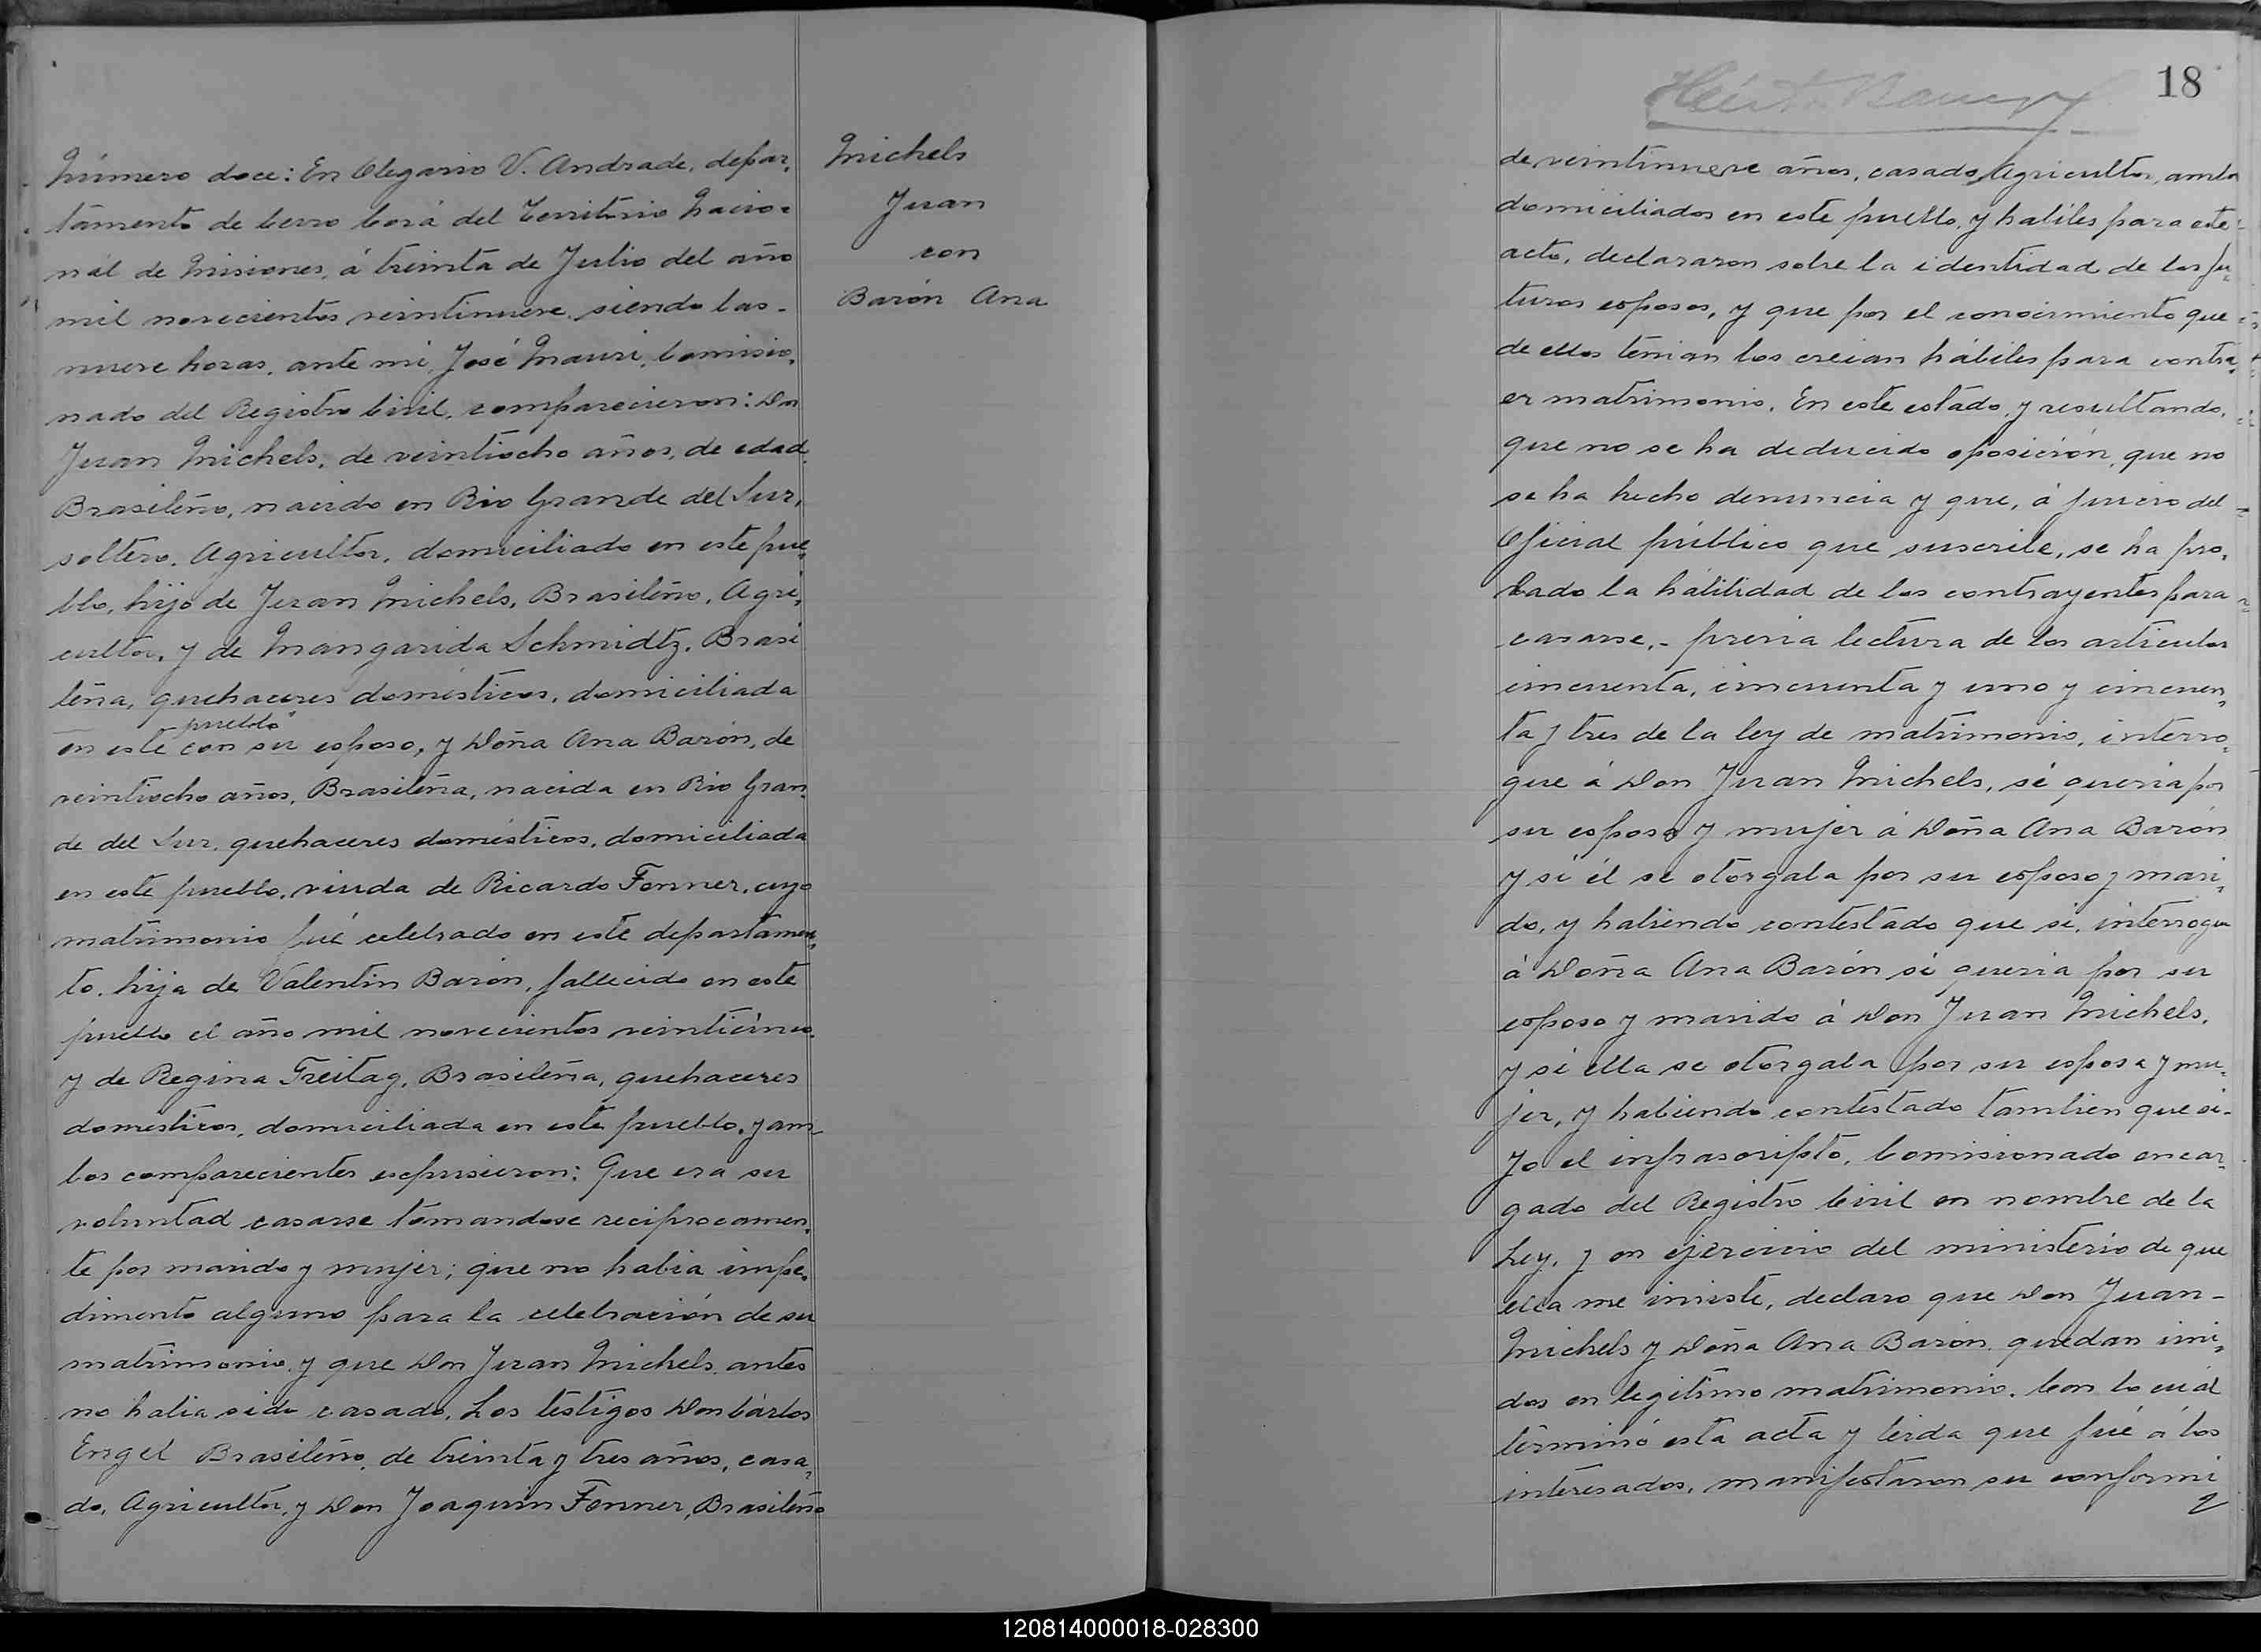 Número doce: En Olegario V. Andrade, depar-
tamento de Cerro Corá del Territorio Nacio-
nal de Misiones, á treinta de Julio del año
mil novecientos veintinueve, siendo las -
nueve horas, ante mi, José Mauri, Comisio-
nado del Registro Civil, comparecieron: Don
Juan Michels, de veintiocho años, de edad,
Brasileño, nacido en Rio Grande del Sur,
soltero, Agricultor, domiciliado en este pue-
blo, hijo de Juan Michels, Brasileño, Agri-
cultor, y de Mangarida Schmidtz, Brasi
leña, quehaceres domésticos, domiciliada
"pueblo"
en este con su esposo, y Doña Ana Barón, de
veintiocho años, Brasileña, nacida en Rio Gran-
de del Sur, quehaceres domésticos, domiciliada
en este pueblo, viuda de Ricardo Fenner, cuyo
matrimonio fué celebrado en este departamen-
to, hija de Valentin Barón, fallecido en este
pueblo el año mil novecientos veinticinco,
y de Regina Freitag, Brasileña, quehaceres
domesticos, domiciliada en este pueblo, y am
bos comparecientes expusieron: Que era su
voluntad casarse tomandose reciprocamen-
te por marido y mujer; que no habia impe-
dimento alguno para la celebración de su
matrimonio, y que Don Juan Michels, antes
no habia sido casado. Los testigos Don Cárlos
Engel Brasileño, de treinta y tres años, casa-
do, Agricultor, y Don Joaquin Fenner, Brasileño
Michels
Juan
con
Barón Ana
18
de veintinueve años, casado, Agricultor, ambos
domiciliados en este pueblo, y habiles para este
acto, declararon sobre la identidad de los fu-
turos esposos, y que por el conocimiento que
de ellos tenian los creian hábiles para contra-
er matrimonio. En este estado, y resultando,
que no se ha deducido oposición, que no
se ha hecho denuncia y que, á juicio del
Oficial público que suscribe, se ha pro-
bado la habilidad de los contrayentes para
casarse, - previa lectura de los articulos
cincuenta, cincuenta y uno y cincuen-
ta y tres de la ley de matrimonio, interro-
gue á Don Juan Michels, si queria por
su esposa y mujer á Doña Ana Barón
y si él se otorgaba por su esposo y mari-
do, y habiendo contestado que si, interrogue
á Doña Ana Barón si queria por su
esposo y marido á Don Juan Michels,
y si ella se otorgaba por su esposa y mu-
jer, y habiendo contestado tambien que si -
Yo el infrascripto, Comisionado encar-
gado del Registro Civil en nombre de la
Ley, y en ejercicio del ministerio de que
ella me inviste, declaro que Don Juan -
Michels y Doña Ana Barón, quedan uni-
dos en legitimo matrimonio. Con lo cuál
terminó esta acta y leida que fué á los
interesados, manifestaron su conformi
120814000018-028300